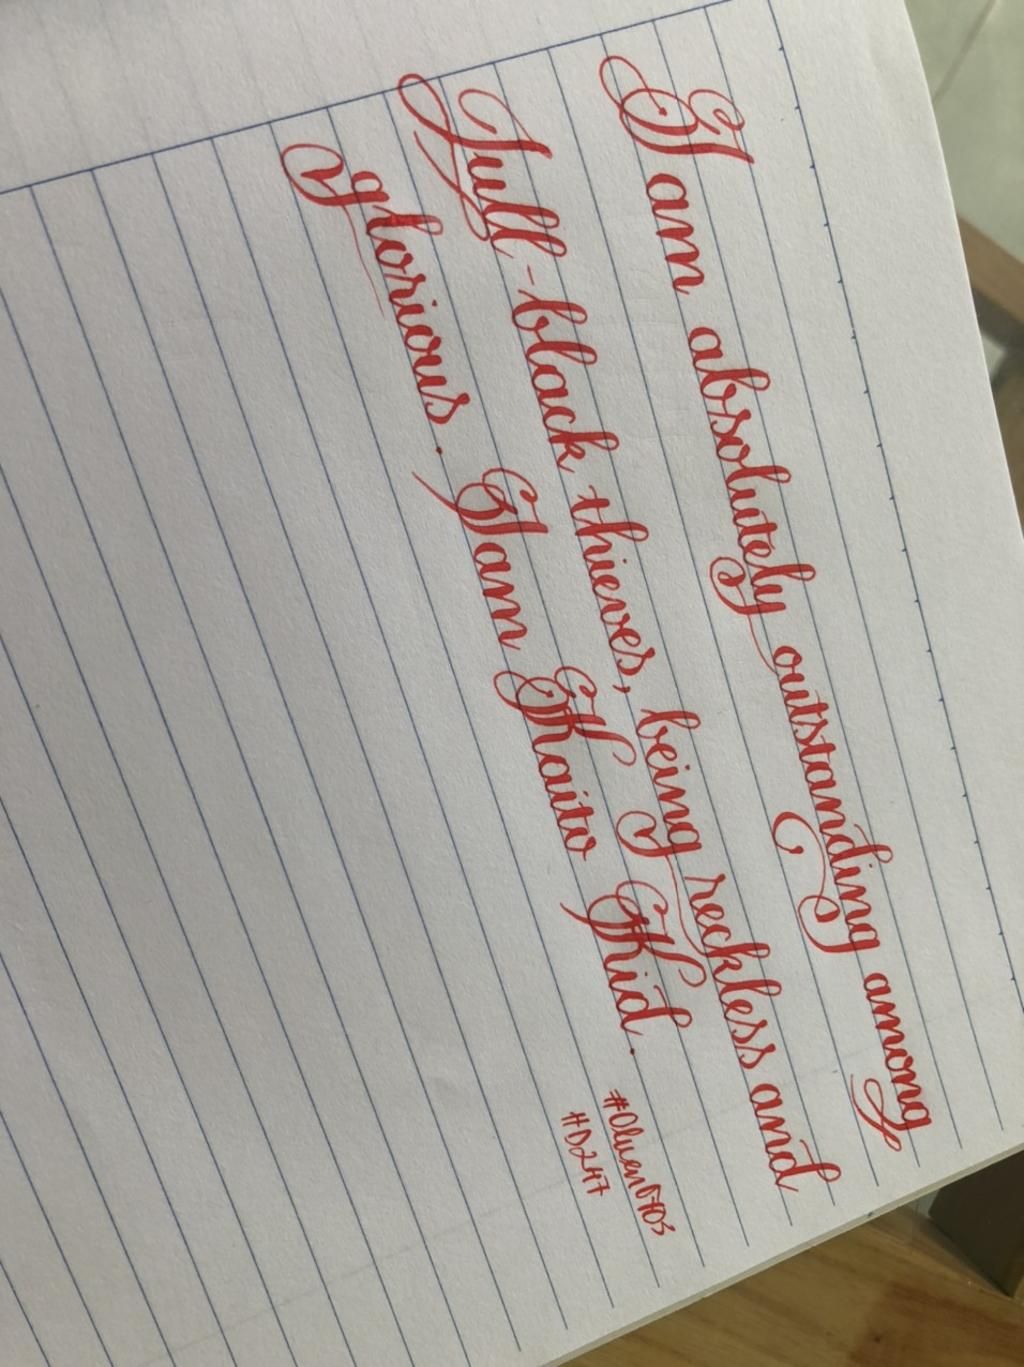 I am absolutely outstanding among
Full-black thieves, being reckless and
glorious. I am Kaito Kid.
#0luen0703
#D247